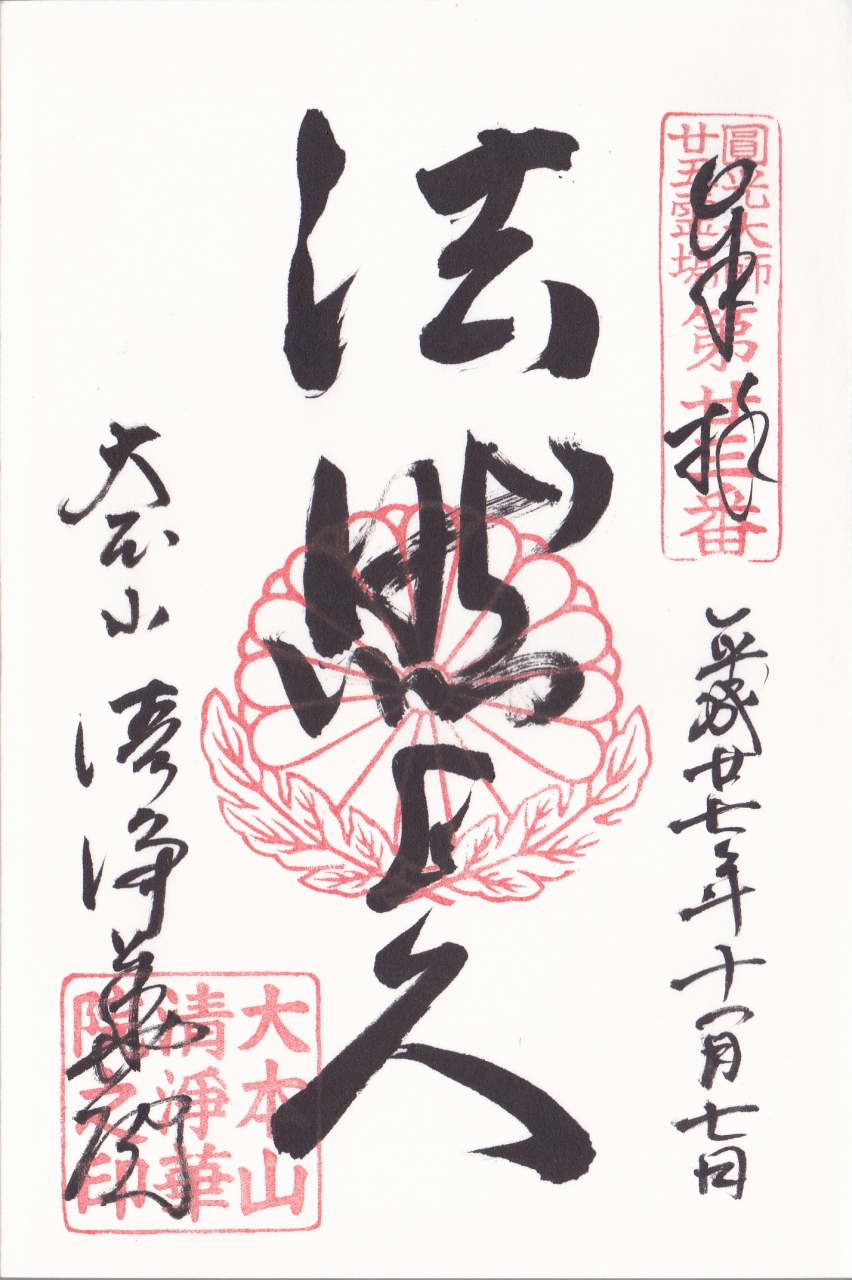 圓光大師
廿五霊場
第廿三番
奉拝
平成廿七年十一月七日
法然上人
大本山 清浄華院
大本山
清淨華
院之印